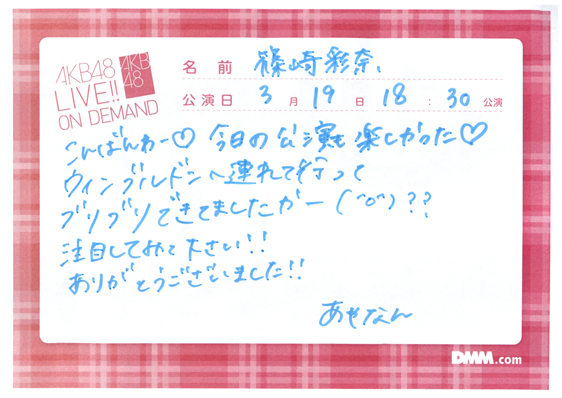 AKB48
LIVE!!
ON DEMAND
AKB
48
名前 篠崎彩奈、
公演日 3月19日 18:30公演
こんばんわー♡ 今日の公演も楽しかった♡
ウィンブルドンへ連れて行って
ブリブリできてましたかー(^o^)??
注目してみて下さい!!
ありがとうございました!!
あやなん
DMM.com